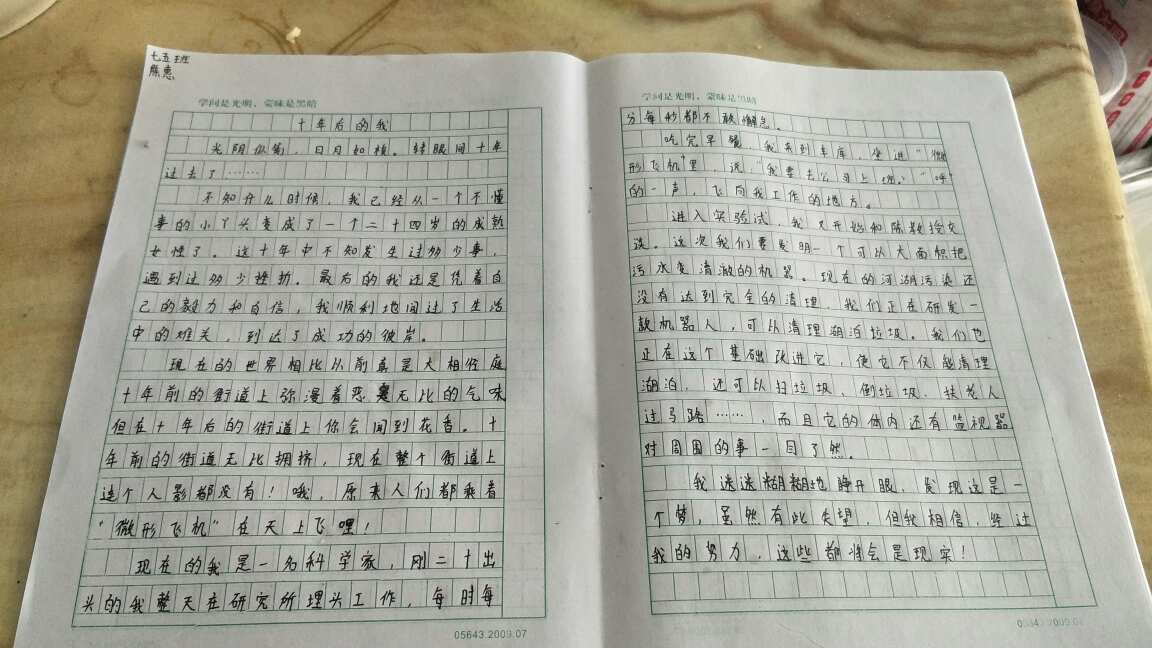 七五班
陈惠
学问是光明，蒙昧是黑暗
十年后的我
光阴似箭，日月如梭。转眼间十年
过去了……
不知什么时候，我已经从一个不懂
事的小丫头变成了一个二十四岁的成熟
女性了。这十年中不知发生过多少事，
遇到过多少挫折。最后的我还是凭着自
己的毅力和自信，我顺利地闯过了生活
中的难关，到达了成功的彼岸。
现在的世界相比从前真是大相径庭
十年前的街道上弥漫着恶臭无比的气味
但在十年后的街道上你会闻到花香。十
年前的街道无比拥挤，现在整个街道上
连个人影都没有！哦，原来人们都乘着
“微形飞机”在天上飞哩！
现在的我是一名科学家，刚二十出
头的我整天在研究所埋头工作，每时每
05643.2009.07
学问是光明，蒙昧是黑暗
分每秒都不敢懈怠。
吃完早餐，我来到车库，坐进“微
形飞机”里，说：“我要去公司上班。”“呼”
的一声，飞向我工作的地方。
进入实验试，我又开始和陈教授交
谈。这次我们要发明一个可以大面积把
污水变清澈的机器。现在的河湖污染还
没有达到完全的清理，我们正在研发一
款机器人，可以清理湖泊垃圾。我们也
正在这个基础改进它，使它不仅能清理
湖泊，还可以扫垃圾、倒垃圾、扶老人
过马路……，而且它的体内还有监视器
对周围的事一目了然。
我迷迷糊糊地睁开眼，发现这是一
个梦，虽然有些失望，但我相信，经过
我的努力，这些都将会是现实！
05643.2009.07